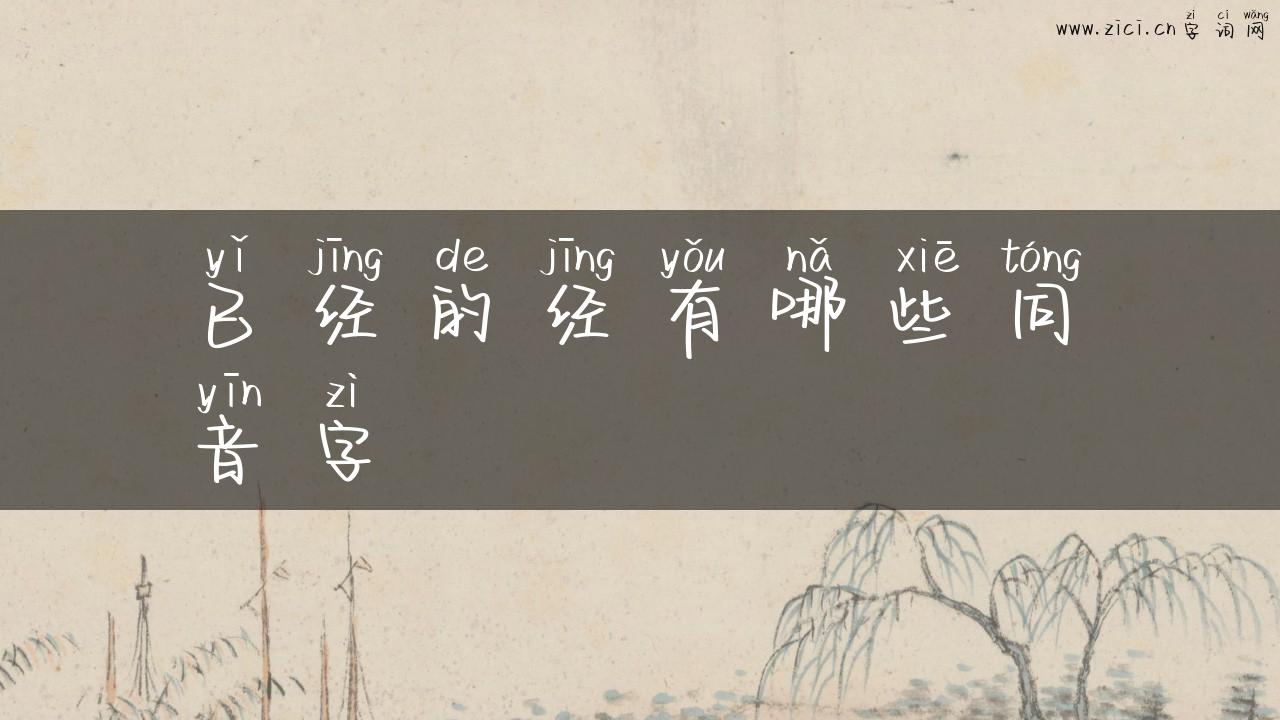 zì cí wǎng
www.zici.cn 字 词 网
yǐ jīng de jīng yǒu nǎ xiē tóng
已 经 的 经 有 哪 些 同
yīn zì
音 字